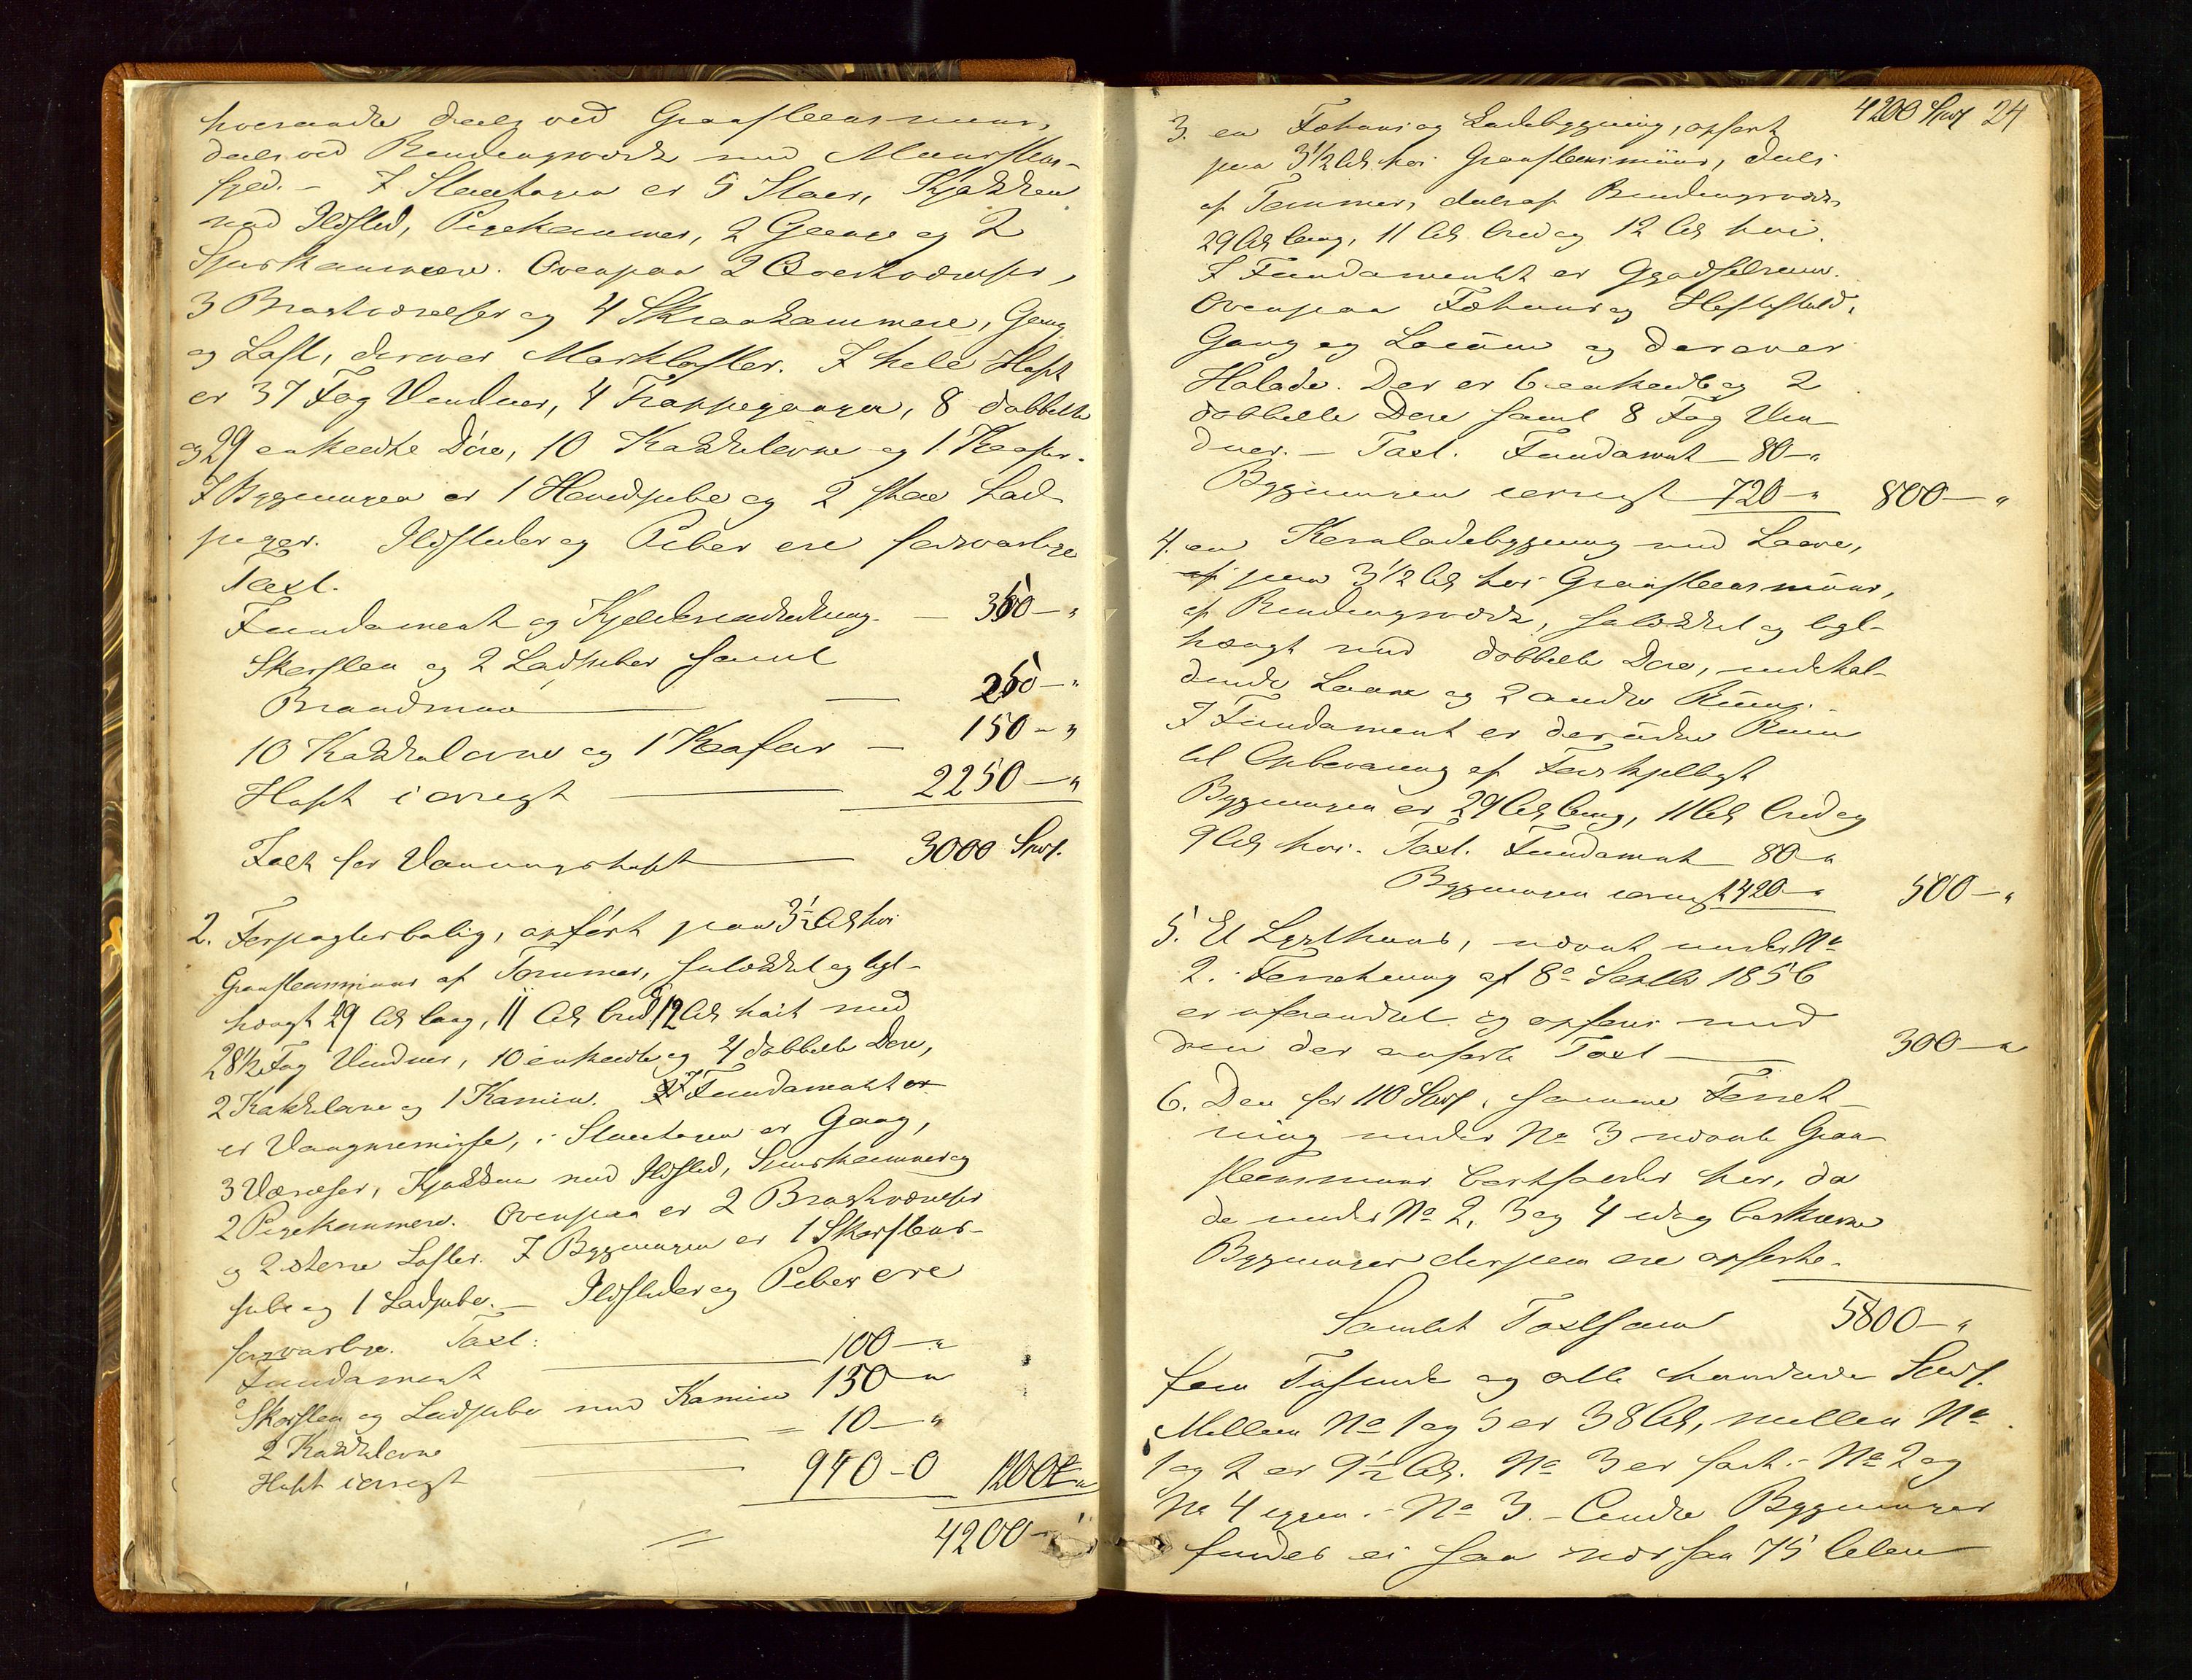 hverandre deels ved Graasteensmuur,
deels ved Bindingsværk med Muursteen-
I Stueetagen er 5 Stuer, Kjøkken
med Ildsted, Pigekammer, 2 Gange og 2
Spiiskammere. Ovenpaa 2 Qvistværelser,
3 Brøstværelser og 4 Skraakammere, Gang
og Loft, derover Mørklofter. I hele Huset
er 37 Fag Vinduer, 4 Trappegange, 8 dobbelte
og 29 enkelte Döre, 10 Kakkelovne og 1 Komfur.
I Bygningen er 1 Hovedpibe og 2 store Lad-
piger. Ildsteder og Piber ere forsvarlige
Taxt.
Fundament og Kjelderindredning — 350 — "
Skorsteen og 2 Ladpiber samt
Brandmuur — 250 — "
10 Kakkelovne og 1 Komfur — 150 — "
Huset i övrigt — 2250 — "
Ialt for Vaaningshuset — 3000 Spd.
2. Forpagterbolig, opfört paa 3 1/2 Al. høi
Graasteensmuur af Tømmer, panelet og tegl-
hængt 29 Al. lang, 11 Al. bred 12 Al. höit med
28 1/2 Fag Vinduer, 10 enkelte og 4 dobbelte Döre,
2 Kakkelovne og 1 Kamin. I Fundamentet er
er Vognremisse, i Stueetagen er Gang,
3 Værelser, Kjøkken med Ildsted, Spiiskammer og
2 Pigekammere. Ovenpaa er 2 Brøstværelser
og 2 større Lofter. I Bygningen er 1 Skorsteens-
pibe og 1 Ladpibe. — Ildsteder og Piber ere
forsvarlige. Taxt:
Fundament — 100 — "
Skorsteen og Ladpibe med Kamin 150 — "
2 Kakkelovne — 10 — "
Huset iövrigt — 940 — 0 1200 — "
4200 — "
4200 Spd 24
3. en Fæhuus og Ladebygning, opført
paa 3 1/2 Al. høi Graasteensmuur, deels
af Tømmer, deels af Bindingsværk
29 Al. lang, 11 Al. bred og 12 Al. høi.
I Fundamentet er Gjødselrum.
Ovenpaa Fæhuus og Hestestald,
Gang og Locum og derover
Hølade. Der er 6 enkelte og 2
dobbelte Døre samt 8 Fag Vin-
duer. — Taxt. Fundament 80 — "
Bygningen iøvrigt 720 — " 800 — "
4. en Kornladebygning med Laave,
paa 3 1/2 Al. høi Graasteensmuur,
af Bindingsværk, panelet og tegl-
hængt med dobbelte Døre, indehol-
dende Laave og 2 andre Rum.
I Fundament er desuden Rum
til Opbevaring af Forskjelligt
Bygningen er 29 Al. lang, 11 Al. bred og
9 Al. høi. Taxt. Fundament 80 — "
Bygningen iøvrigt 420 — " 500 — "
5. Et Lysthuus, nævnt under No
2 i Forretning af 8de Septbr 1856
er uforandret og opføres med
den der anførte Taxt — 300 — "
6. Den for 110 Spd. i samme Forret-
ning under No 3 nævnte Graa-
steensmuur bortfalder her, da
de under No 2, 3 og 4 idag beskrevne
Bygninger derpaa ere opførte.
Samlet Taxtsum 5800 — "
fem Tusinde og otte hundrede Spd.
Mellem No 1 og 5 er 38 Al., mellem No
1 og 2 er 9 1/2 Al. No 3 er fast i No 2 og
No 4 igjen i No 3. — Andre Bygninger
findes ei saa nær som 75 Alen